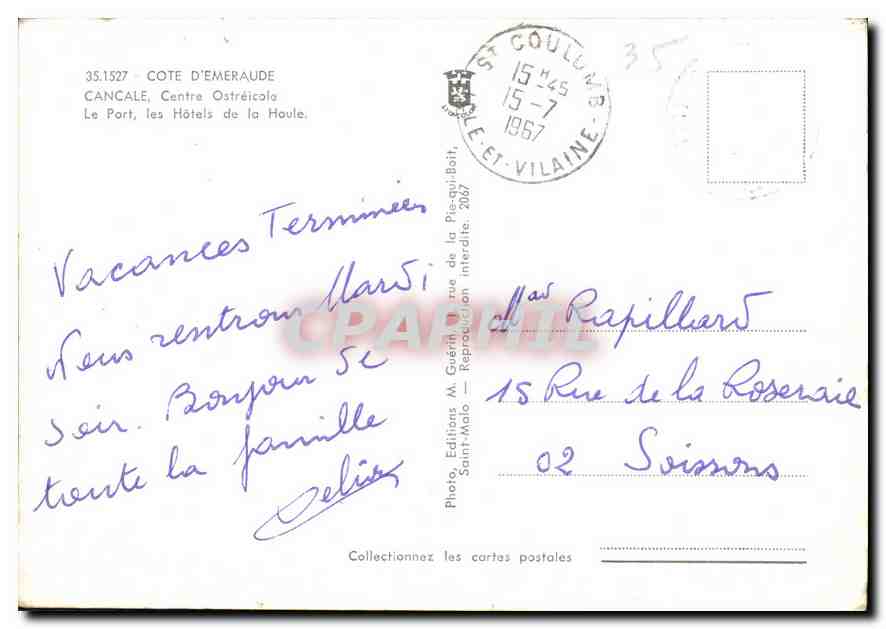 35.1527 - COTE D'EMERAUDE
CANCALE, Centre Ostréicole
Le Port, les Hôtels de la Houle.
ST COULOMB
15 H 45
15 - 7
1967
ILLE-ET-VILAINE
35
Vacances Terminées
Nous rentrons Mardi
Soir. Bonjour de
toute la famille
Photo, Editions M. Guérin, 1 rue de la Pie-qui-Boit,
Saint-Malo — Reproduction interdite. 2067
CPAPHIL
Rapillard
15 Rue de la Roseraie
02 Soissons
Collectionnez les cartes postales